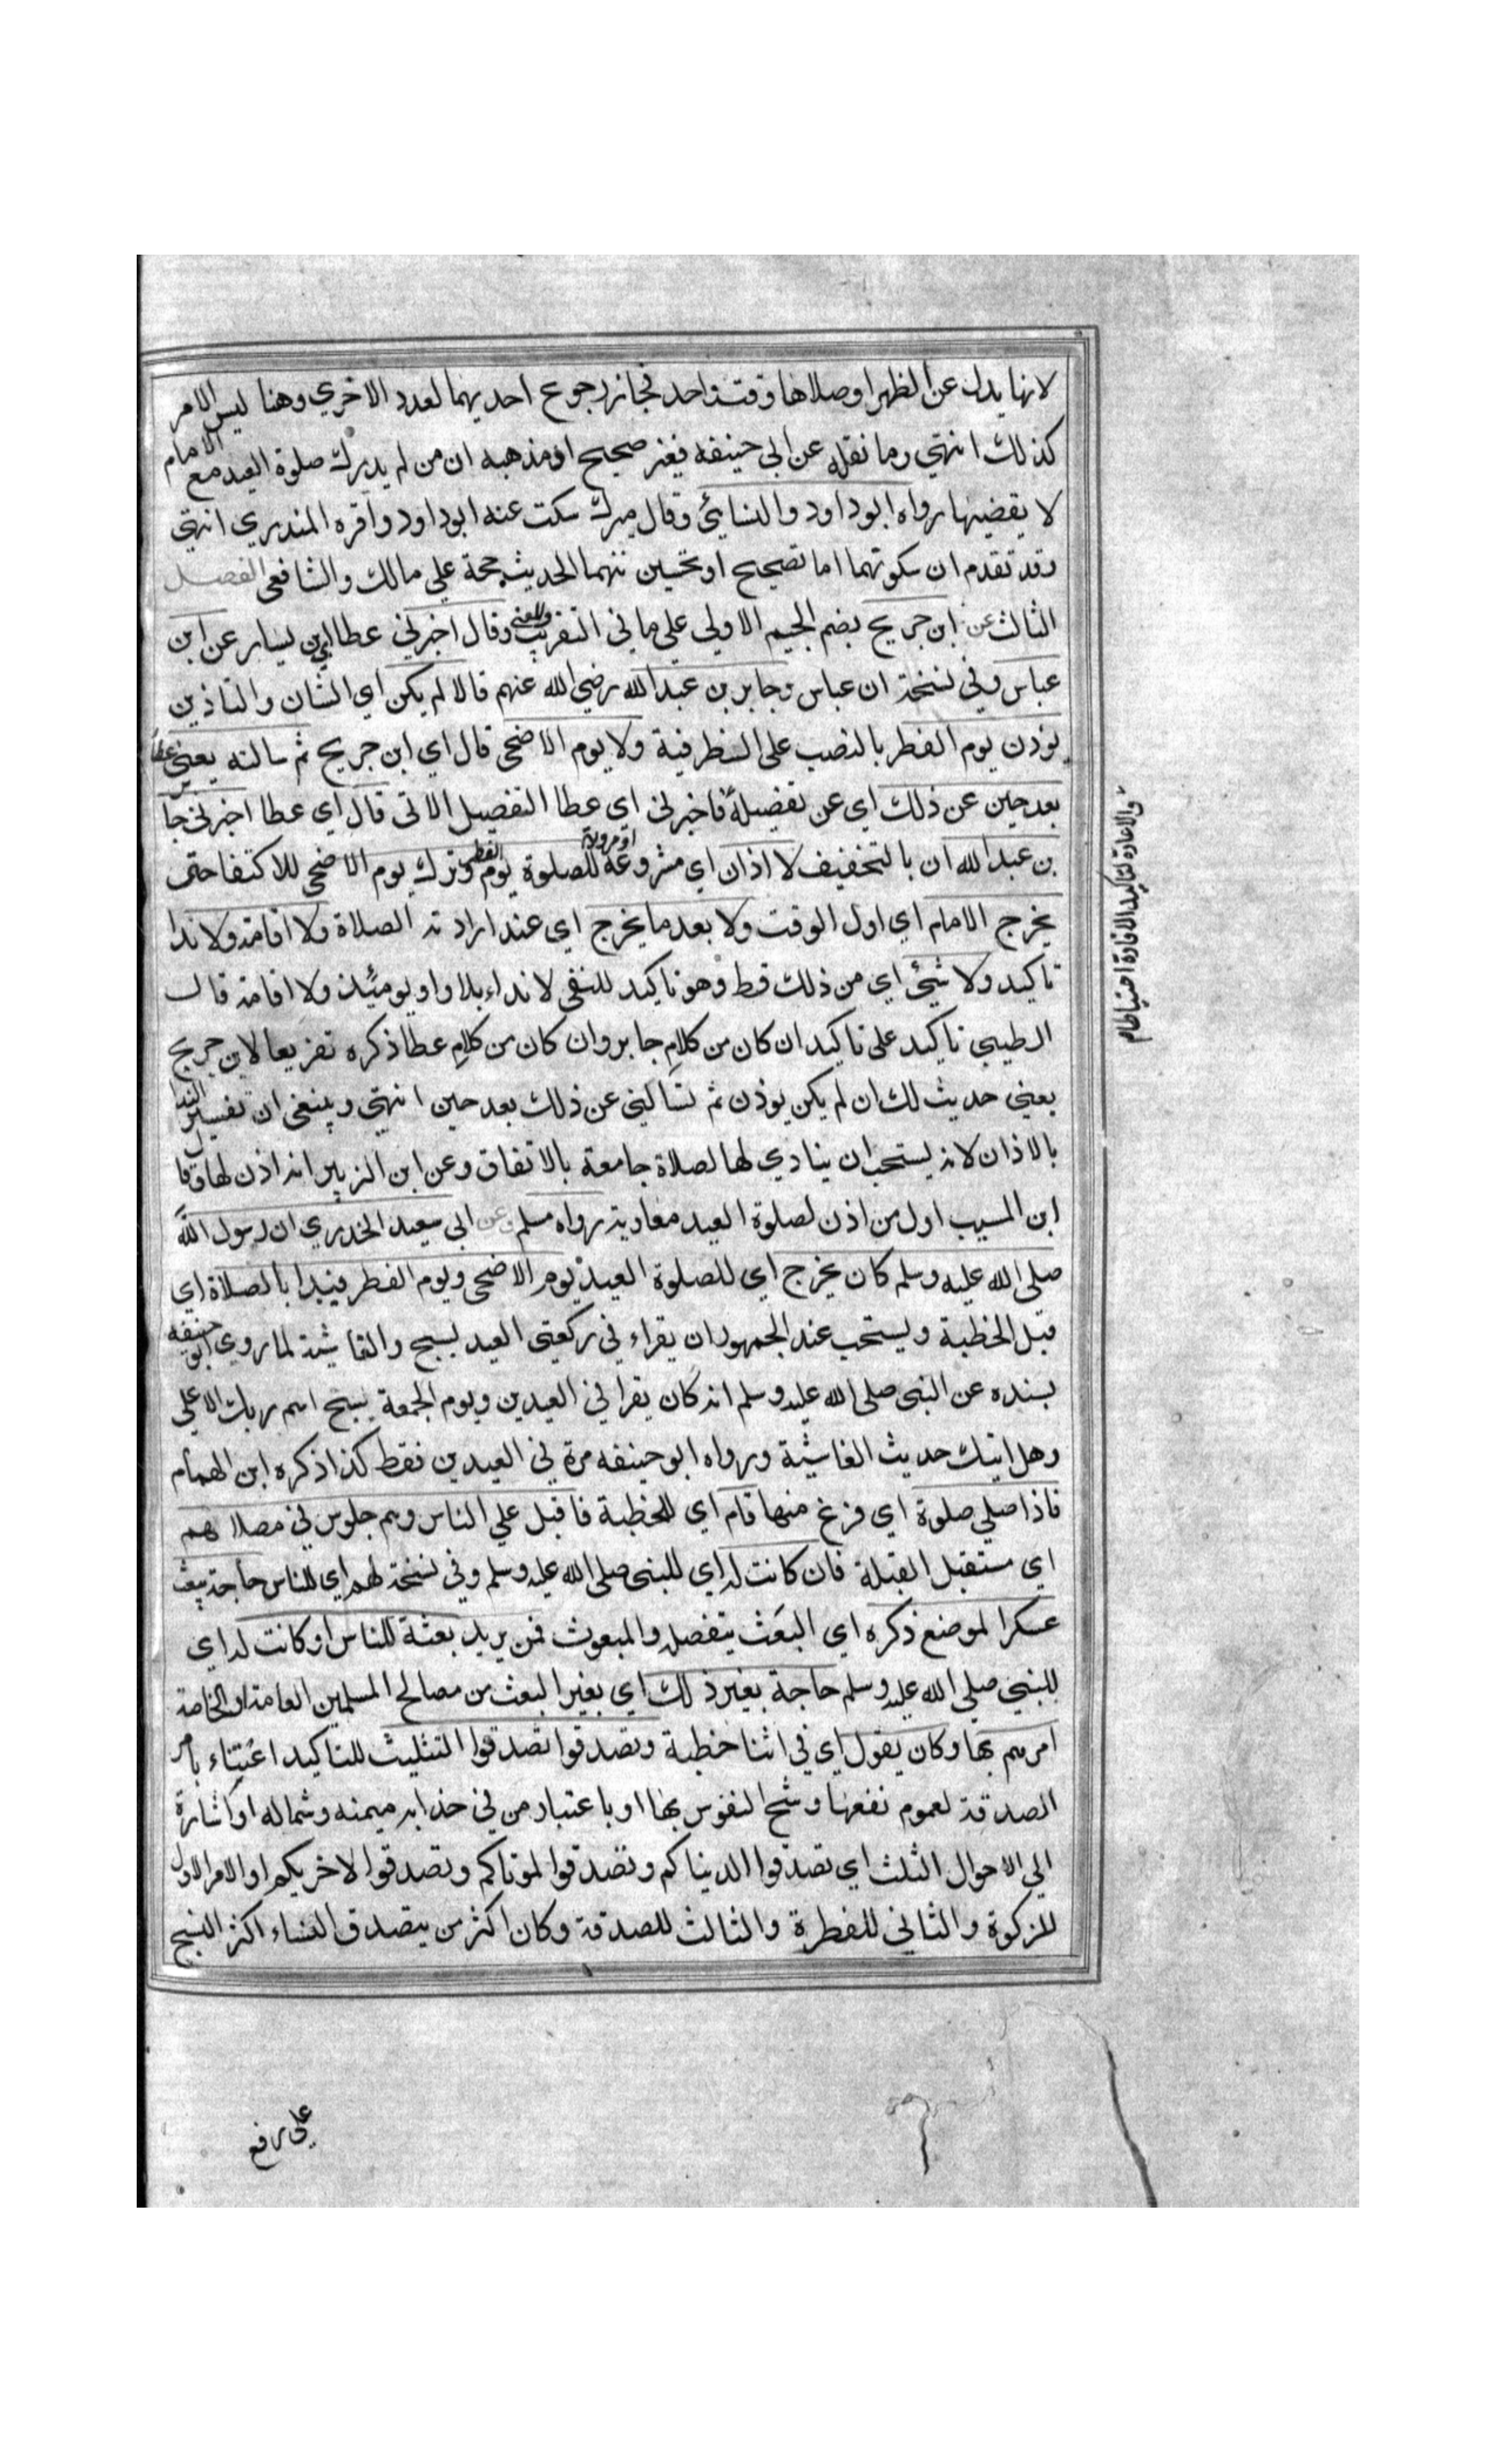 لانها بدل عن الظهر او صلاها وقت واحد فجاز رجوع احديهما لعدد الاخري وهنا ليس الامر
كذلك انتهي وما نقله عن ابي حنيفه فغير صحيح اذ مذهبه ان من لم يدرك صلوة العيد مع الامام
لا يقضيها رواه ابو داود والنسائي وقال ميرك سكت عنه ابو داود واقره المنذري انتهي
وقد تقدم ان سكوتهما اما تصحيح او تحسين منهما الحديث حجة علي مالك والشافعي الفصل
الثالث عن ابن جريج بضم الجيم الاولي علي ما في التقريب والمغني وقال اخبرني عطا اي ابن يسار عن ابن
عباس وفي نسخة ان عباس وجابر بن عبد الله رضي الله عنهم قالا لم يكن اي الشان والتاذين
يوذن يوم الفطر بالنصب علي الظرفية ولا يوم الاضحى قال اي ابن جريج ثم سالته يعني عطا
بعد حين عن ذلك اي عن تفصيله فاخبرني اي عطا التفصيل الاتى قال اي عطا اخبرني جابر
بن عبد الله ان بالتخفيف لا اذان اي مشروعة او مروية للصلوة يوم الفطر وترك يوم الاضحي للاكتفا حتى
يخرج الامام اي اول الوقت ولا بعد ما يخرج اي عند ارادته الصلاة ولا اقامة ولا ندا
تاكيد ولا شيئ اي من ذلك قط وهو تاكيد للنفى لا نداء بلا واو يومئذ ولا اقامة قال
الطيبي تاكيد على تاكيد ان كان من كلام جابر وان كان من كلام عطا ذكره تفريعا لابن جريج
يعني حديث لك ان لم يكن يوذن ثم تسالني عن ذلك بعد حين انتهي وينبغي ان تفسير الندا
بالاذان لانه يستحب ان ينادي لها لصلاة جامعة بالاتفاق وعن ابن الزبير انه اذن لها وقال
ابن المسيب اول من اذن لصلوة العيد معاوية رواه مسلم وعن ابي سعيد الخدري ان رسول الله
صلى الله عليه وسلم كان يخرج اي للصلوة العيد يوم الاضحى ويوم الفطر فيبدا بالصلاة اي
قبل الخطبة ويستحب عند الجمهور ان يقراء في ركعتي العيد بسبح والغاشية لما روي ابو حنيفه
بسنده عن النبى صلى الله عليه وسلم انه كان يقرا في العيدين ويوم الجمعة بسبح اسم ربك الاعلي
وهل اتيك حديث الغاشية ورواه ابو حنيفه مرة في العيدين فقط كذا ذكره ابن الهمام
فاذا صلي صلوة اي فرغ منها قام اي للخطبة فاقبل علي الناس وهم جلوس في مصلاهم
اي مستقبل القبلة فان كانت له اي للنبى صلى الله عليه وسلم وفي نسخة لهم اي للناس حاجة ببعث
عسكرا لموضع ذكره اي البعث بتفصله والمبعوث فمن يريد بعثه للناس او كانت له اي
للنبي صلي الله عليه وسلم حاجة بغير ذلك اي بغير البعث من مصالح المسلمين العامة او الخاصة
امرهم بها وكان يقول اي في اثنا خطبة وتصدقوا تصدقوا التثليث للتاكيد اعتناء بامر
الصدقة لعموم نفعها وشح النفوس بها او باعتبار من في حذايه ميمنه وشماله او اشارة
الي الاحوال الثلث اي تصدقوا الدينا كم وتصدقوا لموتاكم وتصدقوا لاخريكم او الامر الاول
للزكوة والثاني للفطرة والثالث للصدقة وكان اكثر من يتصدق النساء اكثر النسخ
والاعادة لتاكيد الافادة احتياطا م
علي رفع